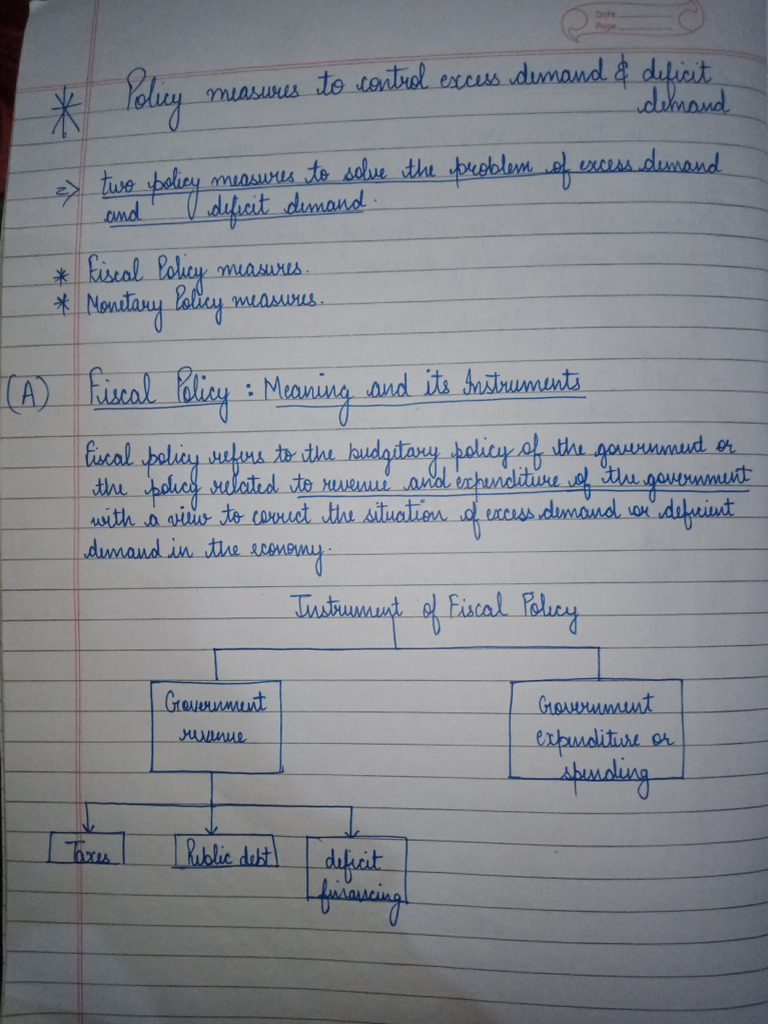 Date
Page
* Policy measures to control excess demand & deficit
demand
=> two policy measures to solve the problem of excess demand
and deficit demand.
* Fiscal Policy measures.
* Monetary Policy measures.
(A) Fiscal Policy : Meaning and its Instruments
Fiscal policy refers to the budgetary policy of the government or
the policy related to revenue and expenditure of the government
with a view to correct the situation of excess demand or deficient
demand in the economy.
Instrument of Fiscal Policy
Government
revenue
Government
expenditure or
spending
Taxes
Public debt
deficit
financing